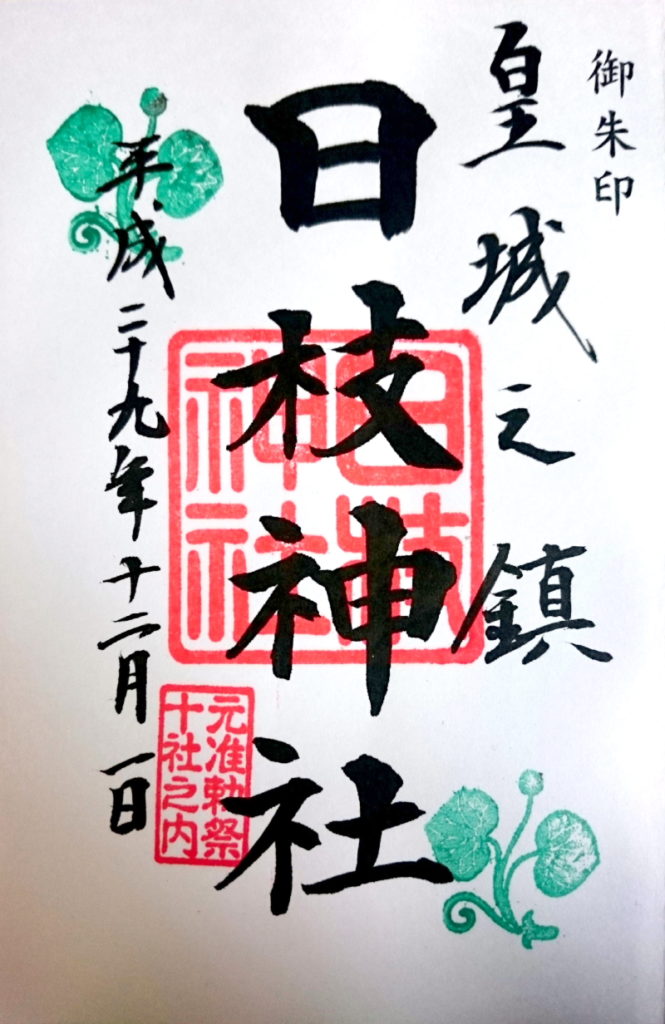 御朱印
皇城之鎮
日枝神社
日枝
神社
元准勅祭
十社之内
平成二十九年十二月一日